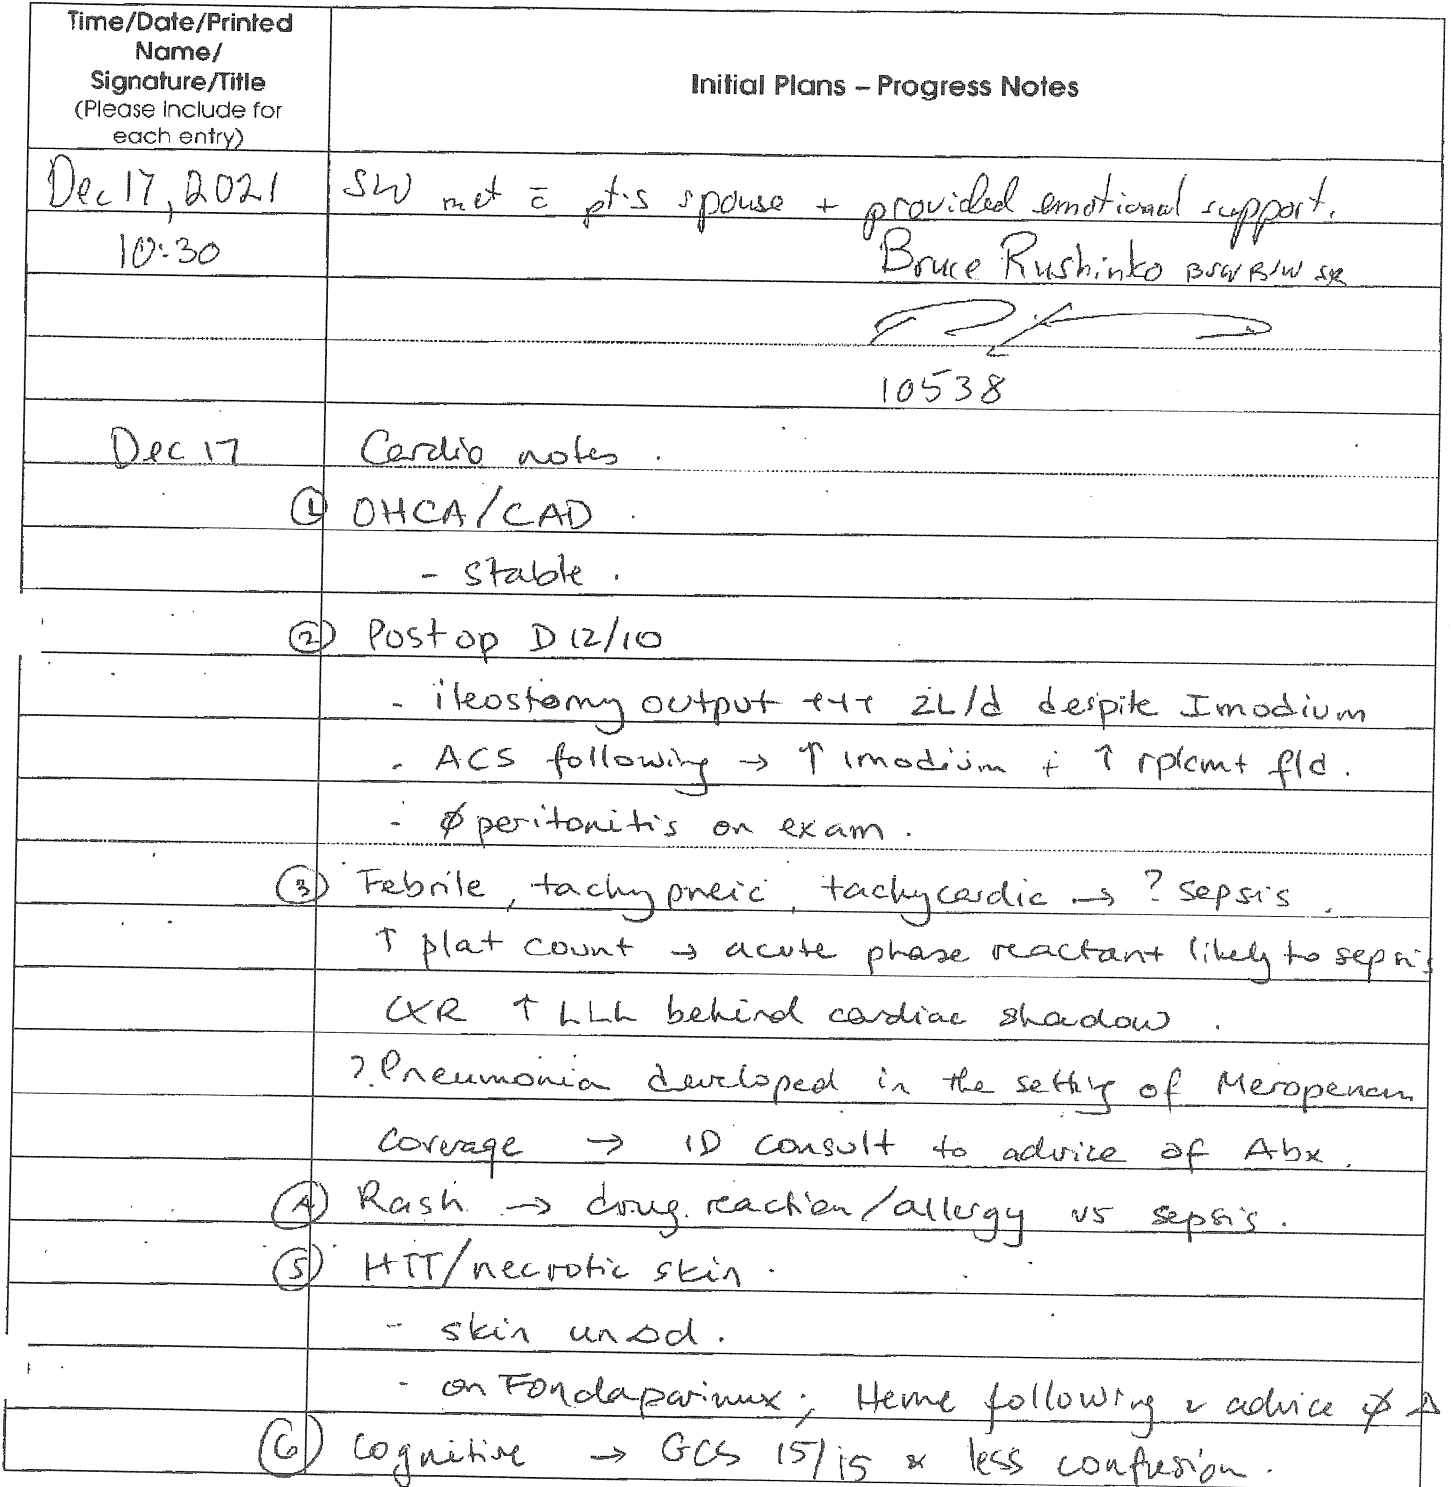 Time/Date/Printed
Name/
Signature/Title
(Please include for
each entry)
Initial Plans – Progress Notes
Dec 17, 2021 SW met c̄ pt's spouse + provided emotional support.
10:30 Bruce Rushinko BSW RSW
10538
Dec 17 Cardio notes.
① OHCA/CAD
- stable.
② Post op D 12/10
- ileostomy output +++ 2L/d despite Imodium
- ACS following → ↑ imodium + ↑ rplcmt fld.
- ∅ peritonitis on exam.
③ Febrile, tachypneic, tachycardic → ? sepsis.
↑ plat count → acute phase reactant likely to sepsis
CXR ↑ LLL behind cardiac shadow.
? Pneumonia developed in the setting of Meropenem
coverage → ID consult to advice of Abx.
④ Rash → drug reaction/allergy vs sepsis.
⑤ HIT/necrotic skin.
- skin unΔd.
- on Fondaparinux; Heme following & advice ∅ Δ
⑥ cognitive → GCS 15/15 & less confusion.